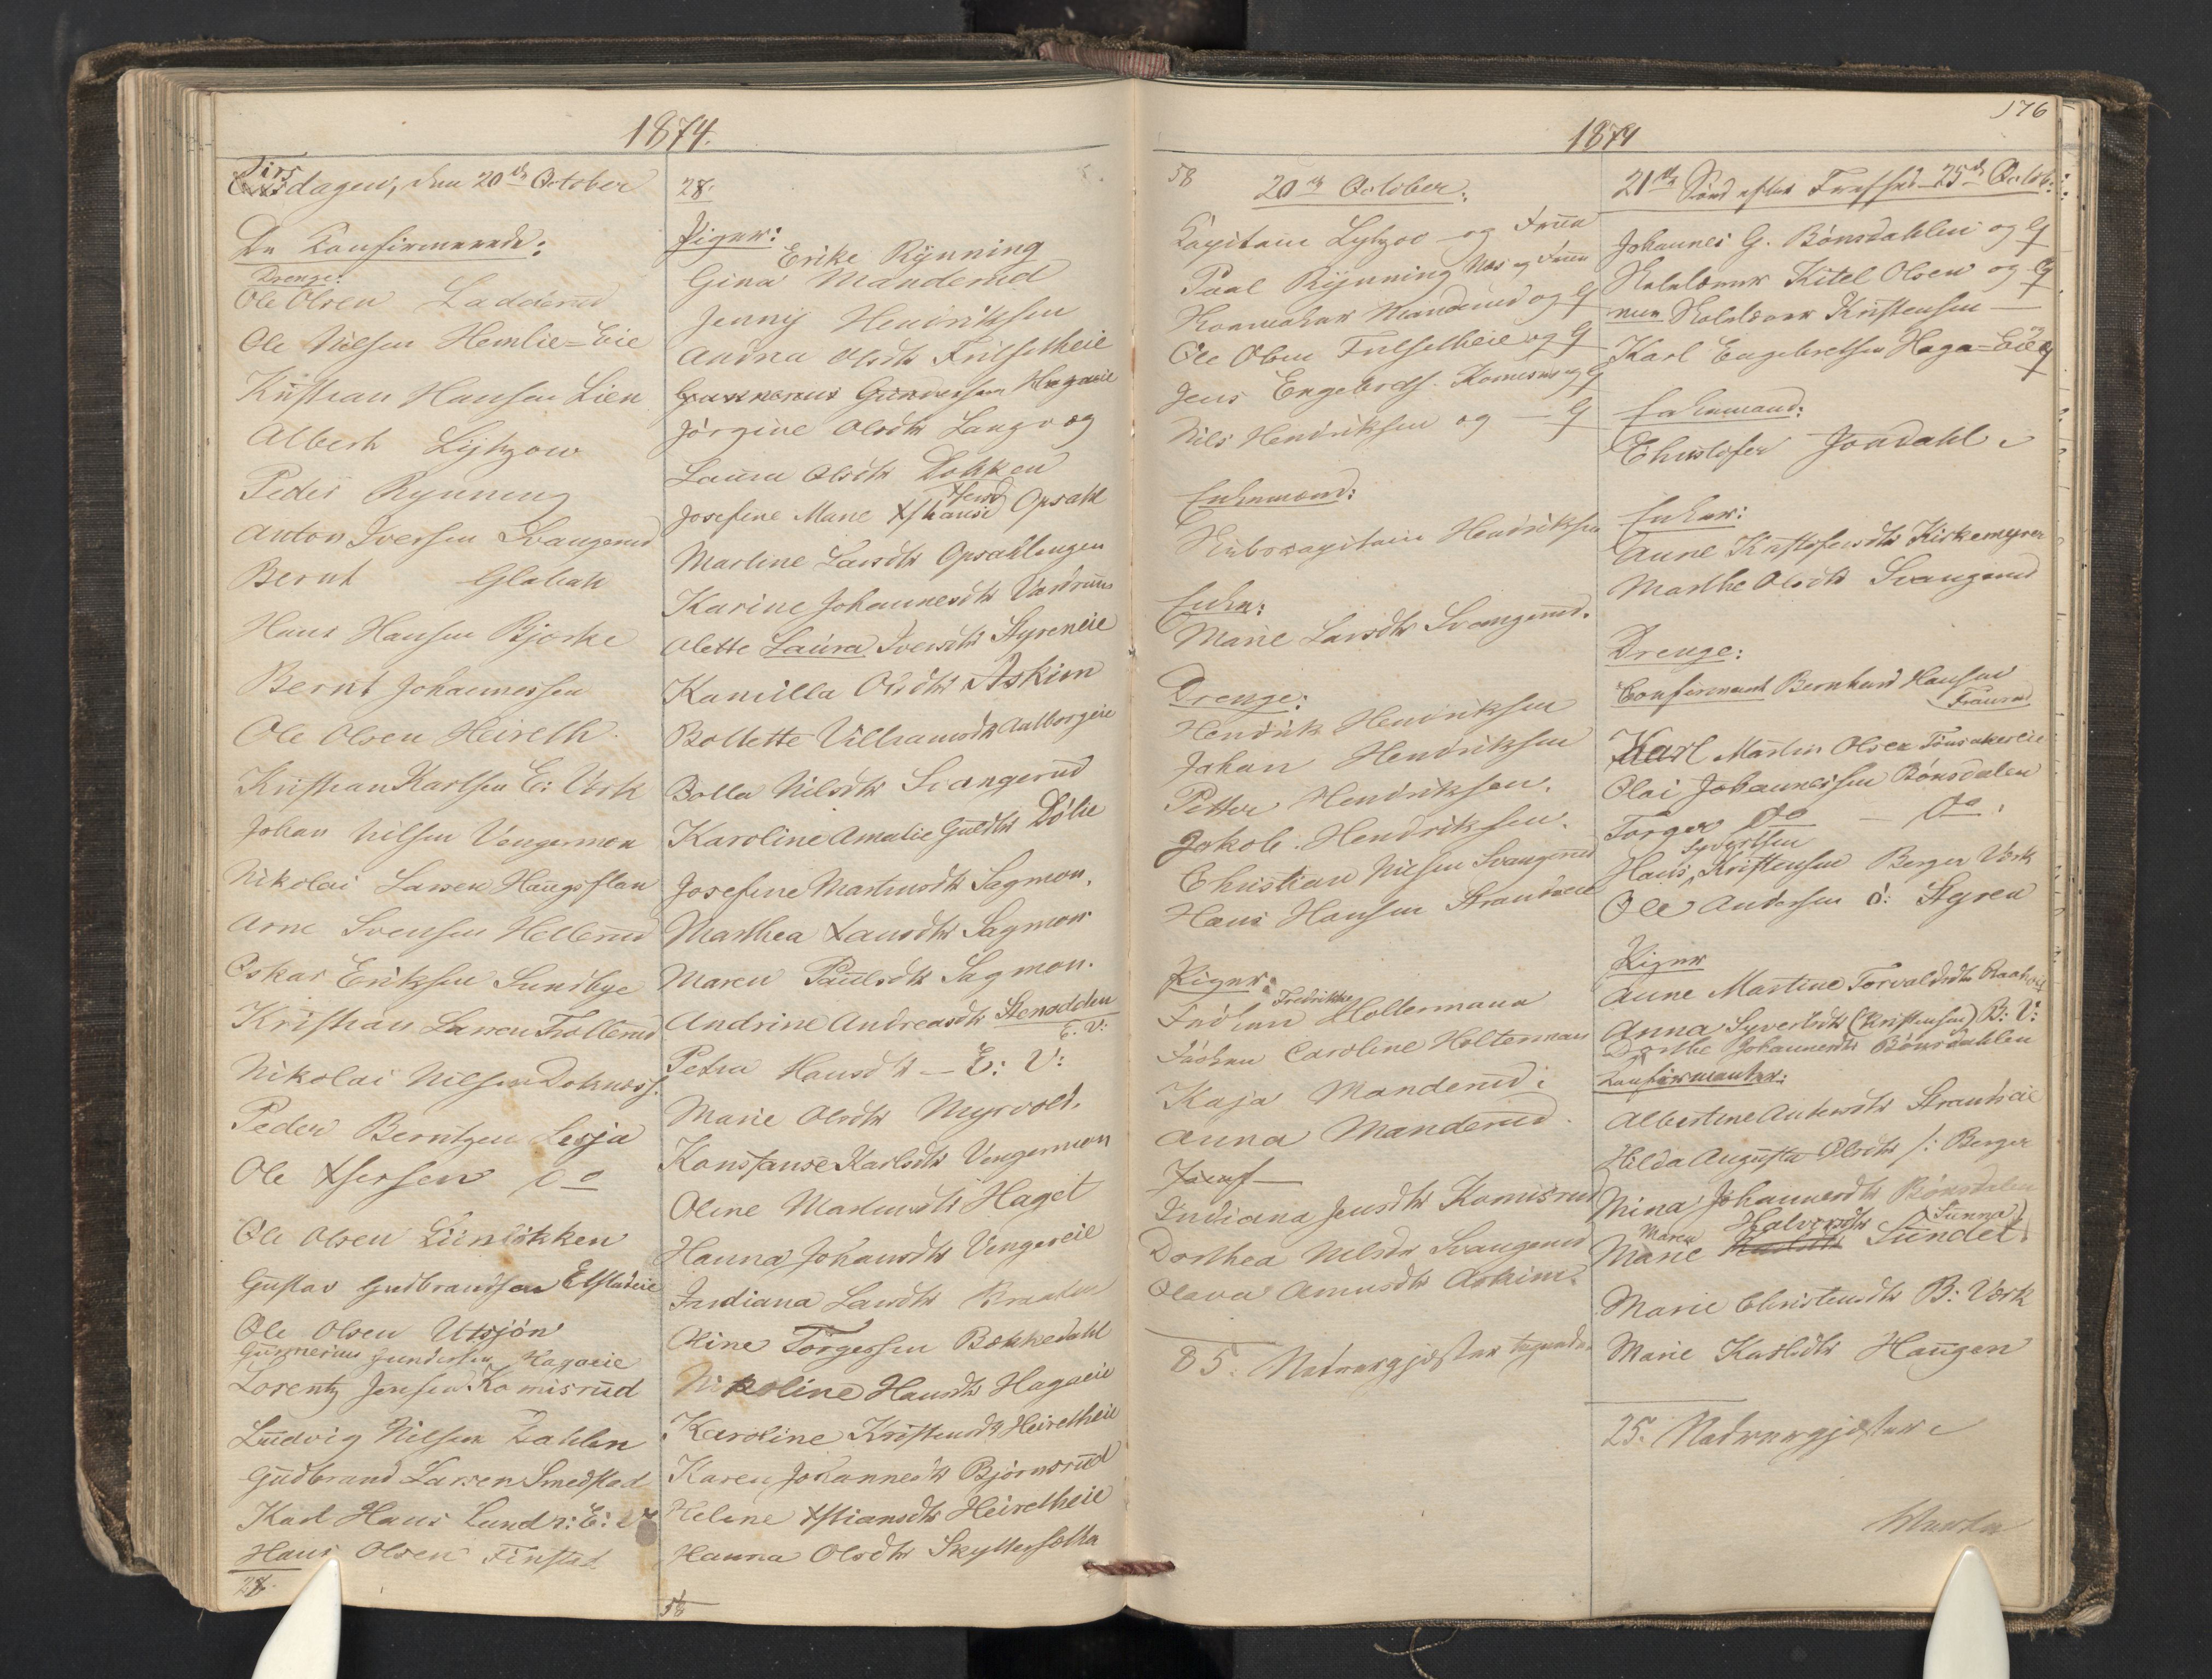 1874.
Tirsdagen, den 20de October
De Konfirmerede:
Drenge:
Ole Olsen Ladderud
Ole Nilsen Hemlie=Eie
Kristian Hansen Lien
Albert Lytzow
Peder Rynning
Anton Iversen Svangerud
Bernt
Hans Hansen Bjørke
Bernt Johannessen
Ole Olsen Heireth
Kristian Karlsen E: Værk
Johan Nilsen Vengermoen
Nikolai Larsen
Arne Svensen Hellerud
Oskar Eriksen Sundbye
Kristian Larsen Trollerud
Nikolai Nilsen
Peder Berntzen Lesja
Ole Xfersen do
Ole Olsen Liinløkken
Gustav Gudbrandsen Elstadeie
Ole Olsen Utsjøn
Gunnerius Gundersen Hagaeie
Lorentz Jensen Komisrud
Ludvig Nilsen Dahlen
Gudbrand Larsen Smedstad
Karl Hans Lund
Hans Olsen Finstad
28.
28.
Piger:
Erike Rynning
Gina Manderud
Jenny Henriksen
Andrea Olsdtr Fulsetheie
Gunnerius Gundersen Hagaeie
Jørgine Olsdtr Langvog
Laura Olsdtr Løkken
Josefine Marie Opsahl
Martine Larsdtr Opsahlengen
Karine Johannesdtr
Olette Laura Iversdtr Styreneie
Kamilla Olsdtr Askim
Bollette Villiamsdtr
Bolla Nilsdtr Svangerud
Karoline Amalie Guldtr Dølie
Josefine Martinsdtr Sagmon.
Marthea Larsdtr Sagmon
Maren Paulsdtr Sagmon.
Andrine Andreasdtr Stensdden
E. V:
Petra Hansdtr – E: V:
Marie Olsdtr Myrvold.
Konstanse Karlsdtr Vengermoen
Oline Martinsdtr Haget
Hanna Johansdtr Vengereie
Indiana Larsdtr Braaten
Oline Torgersen Bækkedahl
Nikoline Hansdtr Hagaeie
Karoline Kristensdtr Heiretheie
Karen Johannesdtr Bjørnsrud
Helene Xstiansdtr Heiretheie
Hanna Olsdtr Skyttersetra
56
1874
58
20de October:
Kapitain Lytzow og Frue
Paal Rynning Næs og Frue
Manderud og G
Ole Olsen Fulsetheie og G
Jens Engebrets. Komisrud og G
Nils Henriksen og — G
Enkemænd:
Skibscapitain Henriksen
Enke:
Marie Larsdtr Svangerud.
Drenge:
Hendrik Hendriksen
Johan Hendriksen
Petter Hendriksen.
Jakob Hendriksen.
Christian Nilsen Svangerud
Hans Hansen Strandeie
Piger:
Frøken Fredrikke Holtermann
Frøken Caroline Holterman
Kaja Manderud:
Anna Manderud.
Indiana Jensdtr Komisrud
Dorthea Nilsdtr Svangerud
Olava Amundsdtr Askim.
85. Nadvergjæster
176
1874
21de Sønd efter Trefhed 25de Octob:
Johannes G. Bønsdahlen og G
Skolelærer Kitel Olsen og G
Skolelærer Kristensen —
Karl Engebretsen Haga=Eie og G
Enkemand:
Christofer Jondahl
Enker:
Anne Kristofersdtr Kirkemyren
Marthe Olsdtr Svangerud
Drenge:
Confirmant Bernhard Hansen
Karl Martin Olsen
Olai Johannessen Bønsdalen
Torger Do — Do.
Syvertsen
Hans Kristensen Berger Værk
Ole Andersen ø: Styren
Piger
Anne Martine Torvaldsdtr
Anna Syvertsdtr (Kristensen) B: V:
Dorthe Johannesdtr Bønsdahlen
Konfirmanter:
Albertine Antonsdtr Strandeie
Hilda Augusta Olsdtr /: Berger
Mina Johannesdtr Bønsdalen
Maren Halvorsdtr (Sunna)
Marie Sundet
Marie Christensdtr B: Værk
Marie Karlsdtr Haugen
25. Nadvergjæster